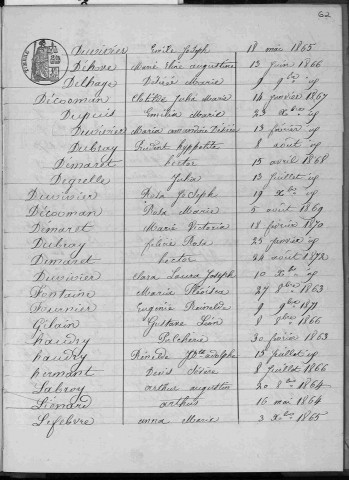 62
Duvivier Emile Joseph 18 mai 1865
Dehove Marie Elise augustine 13 juin 1866
Delhaye Désiré Marie 9 9bre id
Décooman Clotilde Julia Marie 14 janvier 1867
Dupuis Emilia Marie 23 Xbre id
Duvivier Maria 13 février id
Dubray Prudent hyppolite 8 août id
Démaret hector 15 avril 1868
Degrelle Julia 13 juillet id
Duvivier Rosa Joseph 19 Xbre id
Décooman Rosa Marie 5 août 1869
Démaret Marie Victoria 18 février 1870
Dubray Rosa 25 janvier id
Démaret hector 24 août 1872
Duvivier Clara Laura Joseph 10 Xbre id
Fontaine Maria 27 8bre 1863
Fournier Eugénie 9 9bre 1871
Gélain Gustave Léon 8 8bre 1866
haudry Pulchérie 30 1863
haudry adolphe 15 juillet id
hermant Denis Désiré 8 juillet 1866
Labroy arthur augustin 20 8bre 1864
Liénard arthur 16 mai 1864
Lefebvre anna Marie 3 Xbre 1865